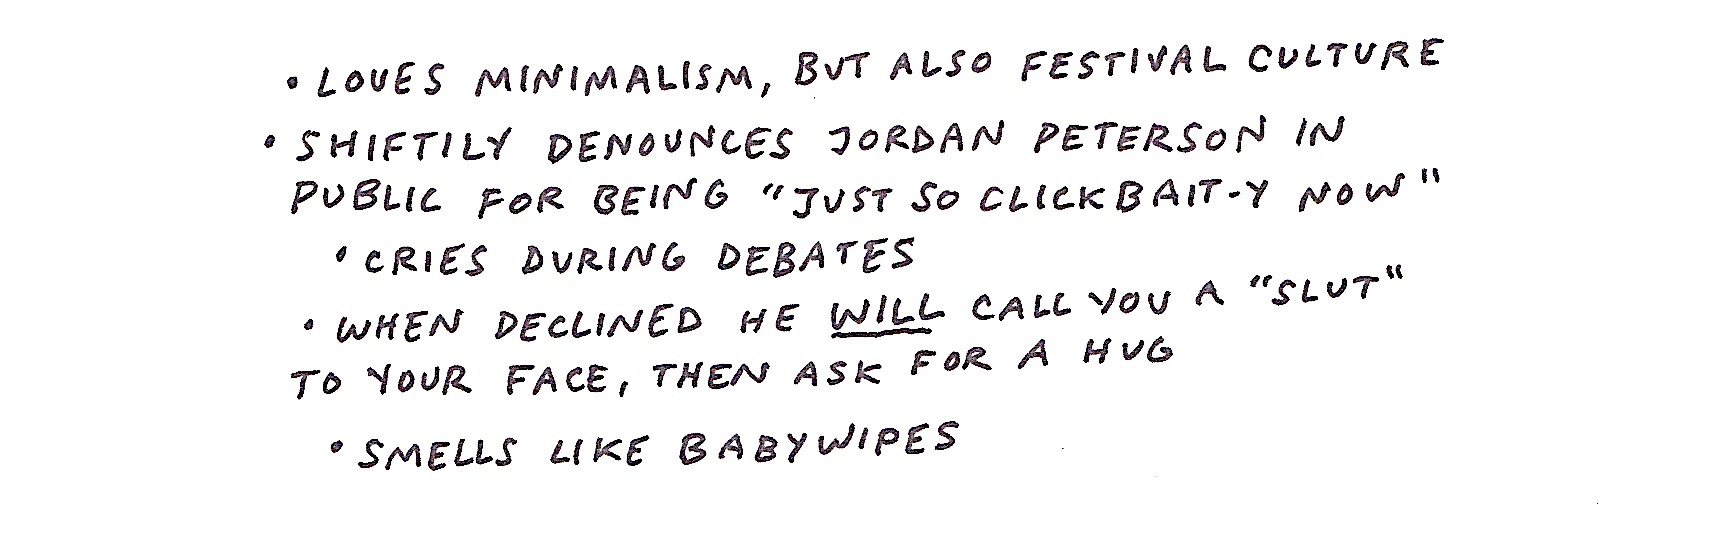 • LOVES MINIMALISM, BUT ALSO FESTIVAL CULTURE
• SHIFTILY DENOUNCES JORDAN PETERSON IN
PUBLIC FOR BEING "JUST SO CLICKBAIT-Y NOW"
• CRIES DURING DEBATES
• WHEN DECLINED HE WILL CALL YOU A "SLUT"
TO YOUR FACE, THEN ASK FOR A HUG
• SMELLS LIKE BABYWIPES